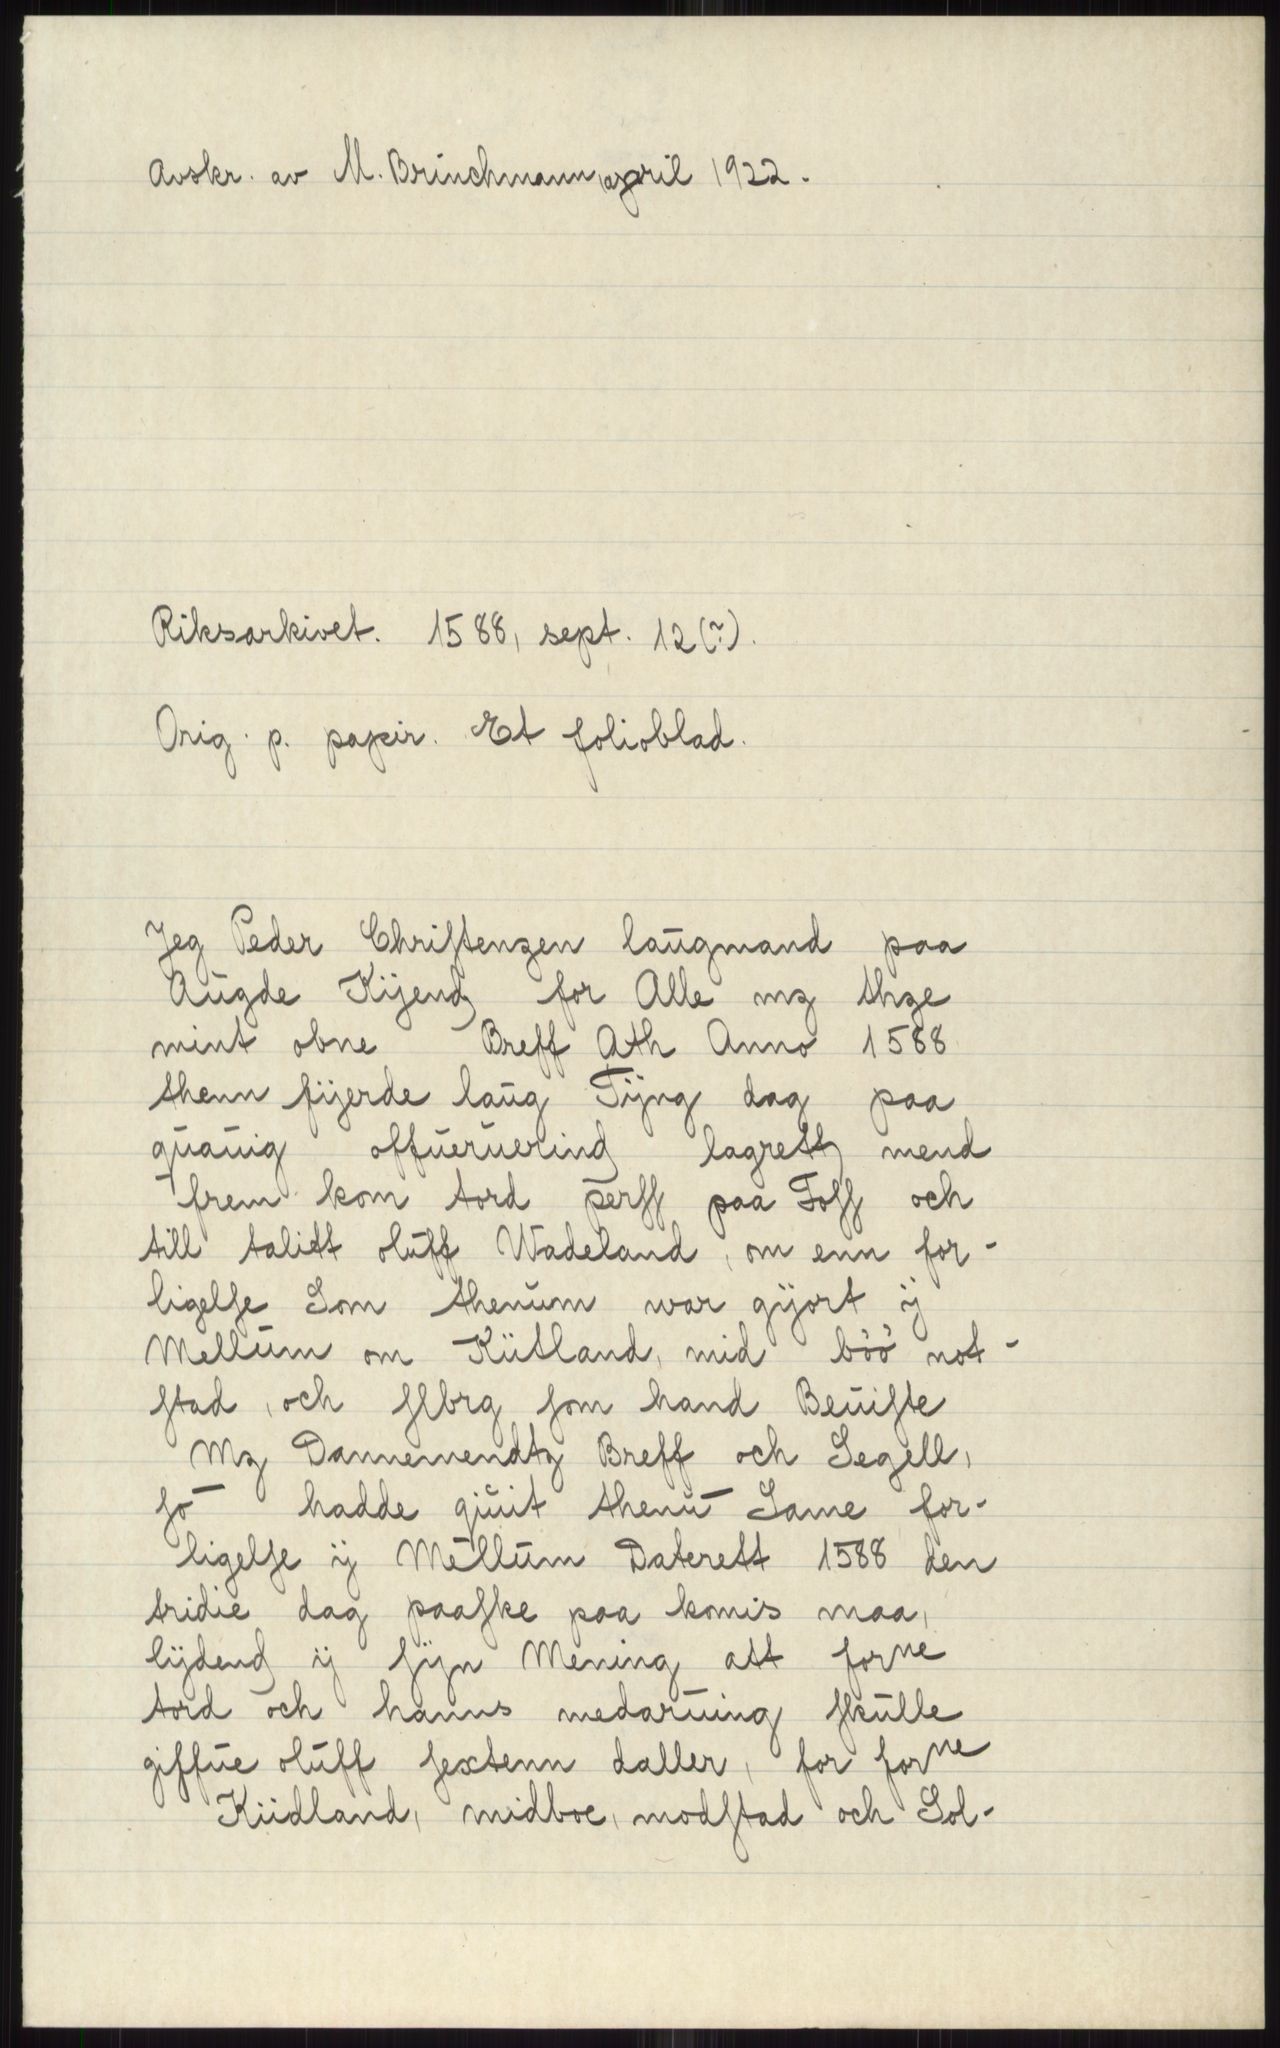 Avskr. av M. Brinchmann, april 1922.
Riksarkivet. 1588, sept. 12(?).
Orig. p. papir. Et folioblad.
Jeg Peder Chriſtenzen laŭgmand paa
Aŭgde Kÿendz for Alle mz thze
mint obne Breff Ath Anno 1588
thenn fÿerde laŭg Tÿng dag paa
qŭaŭig offŭerŭerindz lagrettz mend
frem kom tord perſſ paa Foſſ och
till talitt olŭff Wadeland, om enn for-
ligelſe Som thenŭm war gÿort ÿ
Mellŭm om Kütland, mid böö not-
ſtad, och ſlbrg ſom hand Beŭiſte
Mz Dannemendtz Breff och Segell,
ſō hadde giŭit thenū Same for-
ligelſe ÿ Mellŭm Daterett 1588 den
tridie dag paaſke paa komis maa,
lÿdendz ÿ ſÿn Mening att forne
tord och hanns medarŭing ſkŭlle
giffŭe olŭff ſextenn daller, for forne
Küdland, midboe, modſtad och Sol-